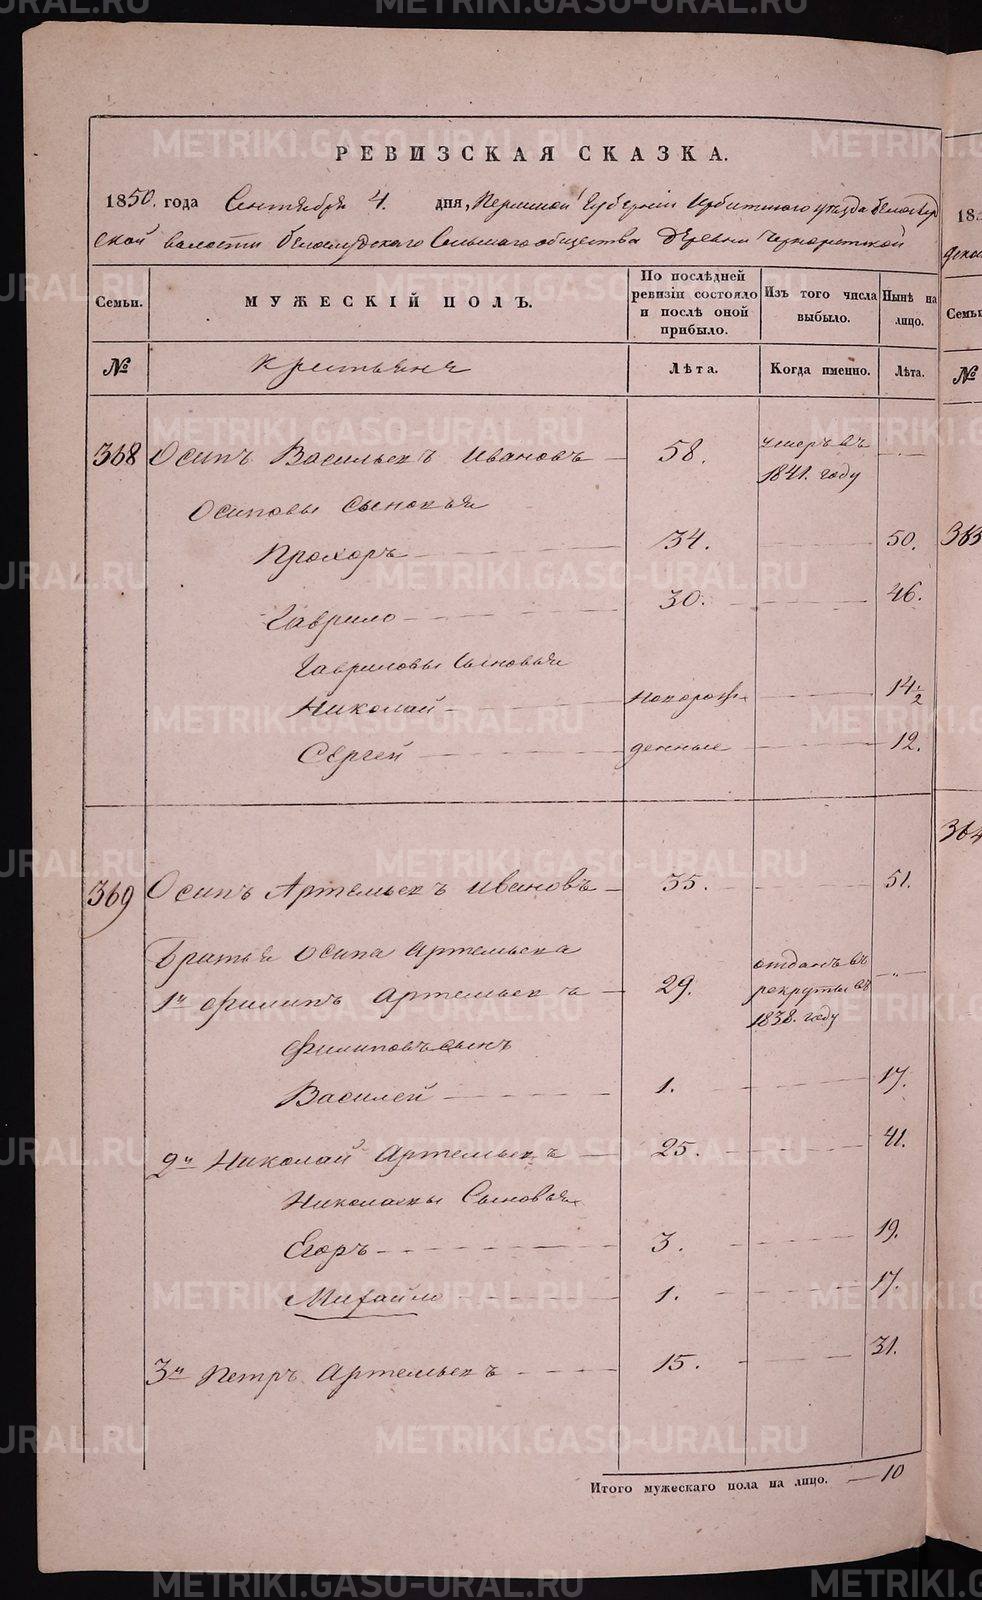 METRIKI.GASO-URAL.RU
РЕВИЗСКАЯ СКАЗКА.
1850. года Сентября 4. дня, Пермской Губерніи Ирбитского уезда Белослуд
ской волости Белослудского Сельскаго общества Деревни
Семьи. МУЖЕСКІЙ ПОЛЪ. По послѣдней ревизіи состояло и послѣ оной прибыло. Изъ того числа выбыло. Нынѣ на лицо.
№ крестьяне Лѣта. Когда именно. Лѣта.
368 Осипъ Васильевъ Ивановъ 58. умеръ въ 1841. году
Осиповы сыновья
Прохоръ 34. 50.
Гаврило 30. 46.
Гавриловы Сыновья
Николай новорож 14 1/2
Сергей денные 12.
369 Осипъ Артемьевъ Ивановъ 35. 51.
Братья Осипа Артемьева
1й Филипъ Артемьевъ 29. отданъ въ рекруты въ 1838. году
Филиповъ сынъ
Василей 1. 17.
2й Николай Артемьевъ 25. 41.
Николаевы Сыновья
Егоръ 3. 19.
Михайло 1. 17.
3й Петръ Артемьевъ 15. 31.
Итого мужескаго пола на лицо. 10
185
Семьи
№
363
364